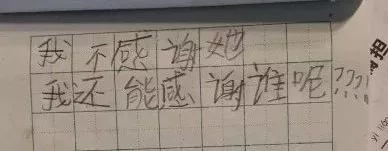 我不感谢她
我还能感谢谁呢???!
担